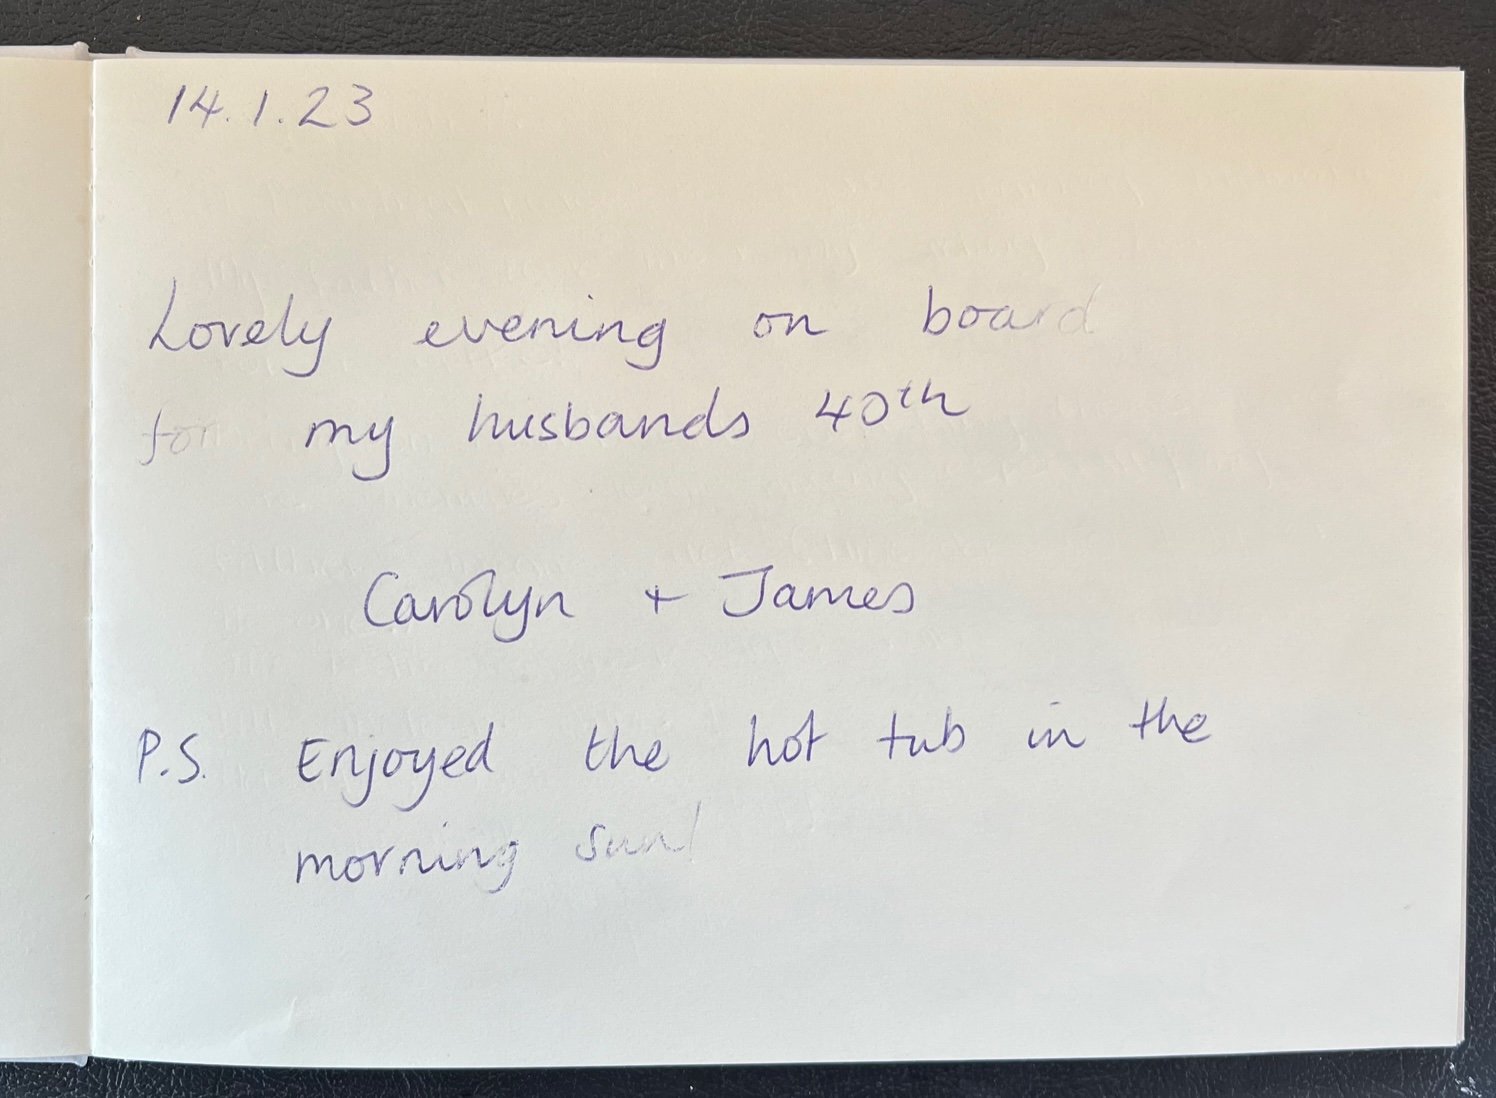 14.1.23
Lovely evening on board
for my husbands 40th
Carolyn + James
P.S. Enjoyed the hot tub in the
morning sun!